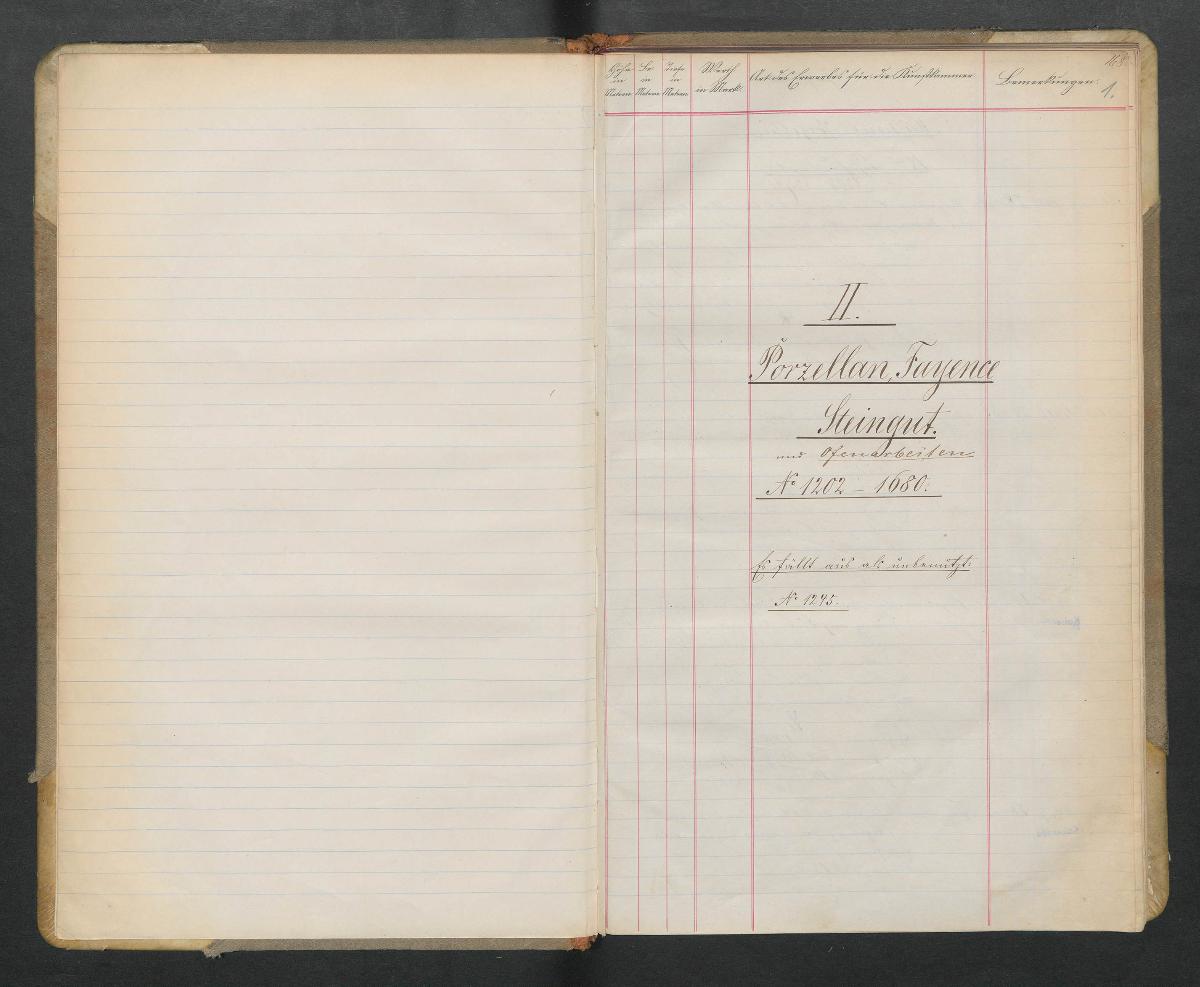 Höhe in Metern
Br in Metern
Tiefe in Metern
Werth in Mark.
Art des Erwerbes für die Kunstkammer
Bemerkungen.
168
1.
II.
Porzellan, Fayence
Steingut.
und Ofenarbeiten
No 1202 – 1680.
Es fällt aus als unbenutzt:
No 1245.